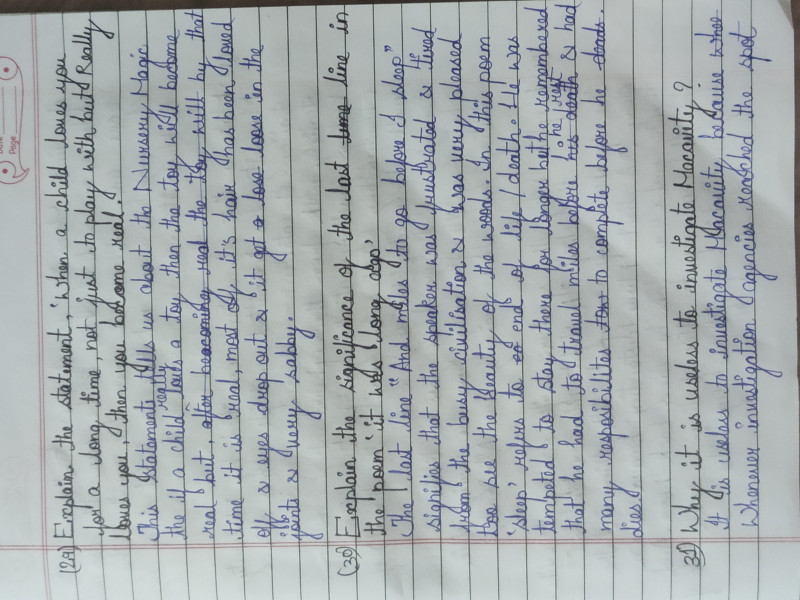 Date
Page
(29) Explain the statement, 'when a child loves you
for a long time, not just to play with but Really
loves you, then you become real.'
This statements tells us about the Nursery Magic
the if a child really loves a toy then the toy will become
real but, after beacoming real the toy will by that
time it is real, most of it's hair has been loved
off & eyes drop out & it get a lose loose in the
joints & very sabby.
(30) Explain the significance of the last time line in
the poem 'it was long ago,'
The last line "And miles to go before I sleep"
signifies that the speaker was frustrated & tired
from the busy civilisation & was very pleased
too see the beauty of the woods. In this poem
'sleep' refers to end of life / death. He was
tempeted to stay there for longer but he remembered
that he had to travel miles before his death he rest & had
many resposibilites to complete before he deads.
dies
31) Why it is useless to investigate Macavity?
It is useless to investigate Macavity because
whenever investigation agencies reached the spot